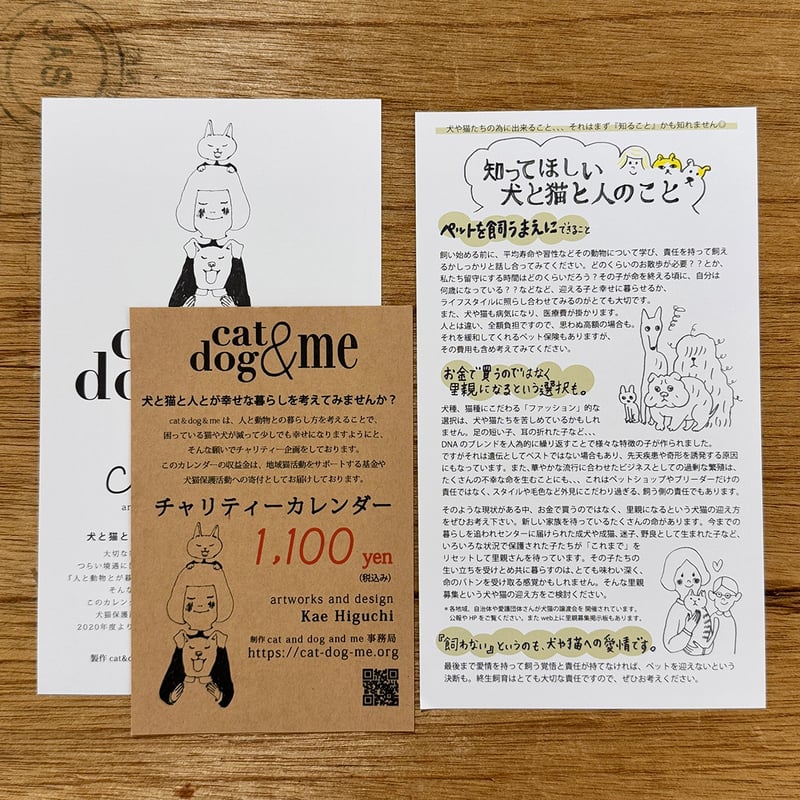 JAS
cat
dog&me
犬と猫と人とが幸せな暮らしを考えてみませんか？
cat＆dog＆me は、人と動物との暮らし方を考えることで、
困っている猫や犬が減って少しでも幸せになりますようにと、
そんな願いでチャリティー企画をしております。
このカレンダーの収益金は、地域猫活動をサポートする基金や
犬猫保護活動への寄付としてお届けしております。
チャリティーカレンダー
1,100 yen
（税込み）
artworks and design
Kae Higuchi
制作 cat and dog and me 事務局
https://cat-dog-me.org
do
犬と猫と
大切な
つらい境遇に
「人と動物とが暮
そんな
このカレン
犬猫保護
2020年度より
製作 cat&d
犬や猫たちの為に出来ること、、、それはまず『知ること』かも知れません◎
知ってほしい
犬と猫と人のこと
ペットを飼うまえに できること
飼い始める前に、平均寿命や習性などその動物について学び、責任を持って飼え
るかしっかりと話し合ってみてください。どのくらいのお散歩が必要？？とか、
私たち留守にする時間はどのくらいだろう？その子が命を終える頃に、自分は
何歳になっている？？などなど、迎える子と幸せに暮らせるか、
ライフスタイルに照らし合わせてみるのがとても大切です。
また、犬や猫も病気になり、医療費が掛かります。
人とは違い、全額負担ですので、思わぬ高額の場合も。
それを緩和してくれるペット保険もありますが、
その費用も含め考えてみてください。
お金で買うのではなく
里親になるという選択も。
犬種、猫種にこだわる「ファッション」的な
選択は、犬や猫たちを苦しめているかもしれ
ません。足の短い子、耳の折れた子など、、、
DNAのブレンドを人為的に繰り返すことで様々な特徴の子が作られました。
ですがそれは遺伝としてベストではない場合もあり、先天疾患や奇形を誘発する原因
にもなっています。また、華やかな流行に合わせたビジネスとしての過剰な繁殖は、
たくさんの不幸な命を生むことにも、、、これはペットショップやブリーダーだけの
責任ではなく、スタイルや毛色など外見にこだわり過ぎる、飼う側の責任でもあります。
そのような現状がある中、お金で買うのではなく、里親になるという犬猫の迎え方
をぜひお考え下さい。新しい家族を待っているたくさんの命があります。今までの
暮らしを追われセンターに届けられた成犬や成猫、迷子、野良として生まれた子など、
いろいろな状況で保護された子たちが「これまで」を
リセットして里親さんを待っています。その子たちの
生い立ちを受けとめ共に暮らすのは、とても味わい深く、
命のバトンを受け取る感覚かもしれません。そんな里親
募集という犬や猫の迎え方をご検討ください。
＊各地域、自治体や愛護団体さんが犬猫の譲渡会を 開催されています。
公報や HP をご覧ください。また web上に里親募集掲示板もあります。
『飼わない』というのも、犬や猫への愛情です。
最後まで愛情を持って飼う覚悟と責任が持てなければ、ペットを迎えないという
決断も。終生飼育はとても大切な責任ですので、ぜひお考えください。